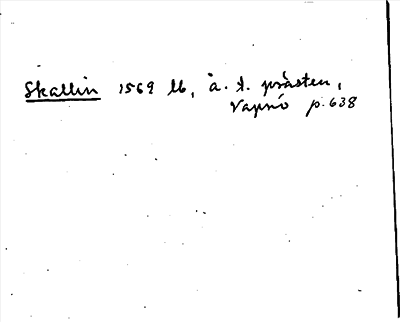 Skallin 1569 lb, å. t. prästen,
Vapnö p. 638